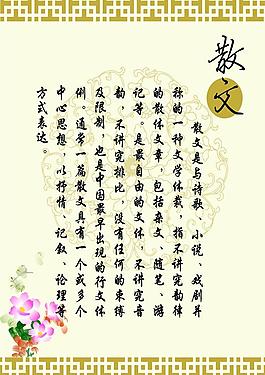 散文
散文是与诗歌、小说、戏剧并
称的一种文学体裁，指不讲究韵律
的散体文章，包括杂文、随笔、游
记等。是最自由的文体，不讲究音
韵，不讲究排比，没有任何的束缚
及限制，也是中国最早出现的行文体
例。通常一篇散文具有一个或多个
中心思想，以抒情、记叙、论理等
方式表达。